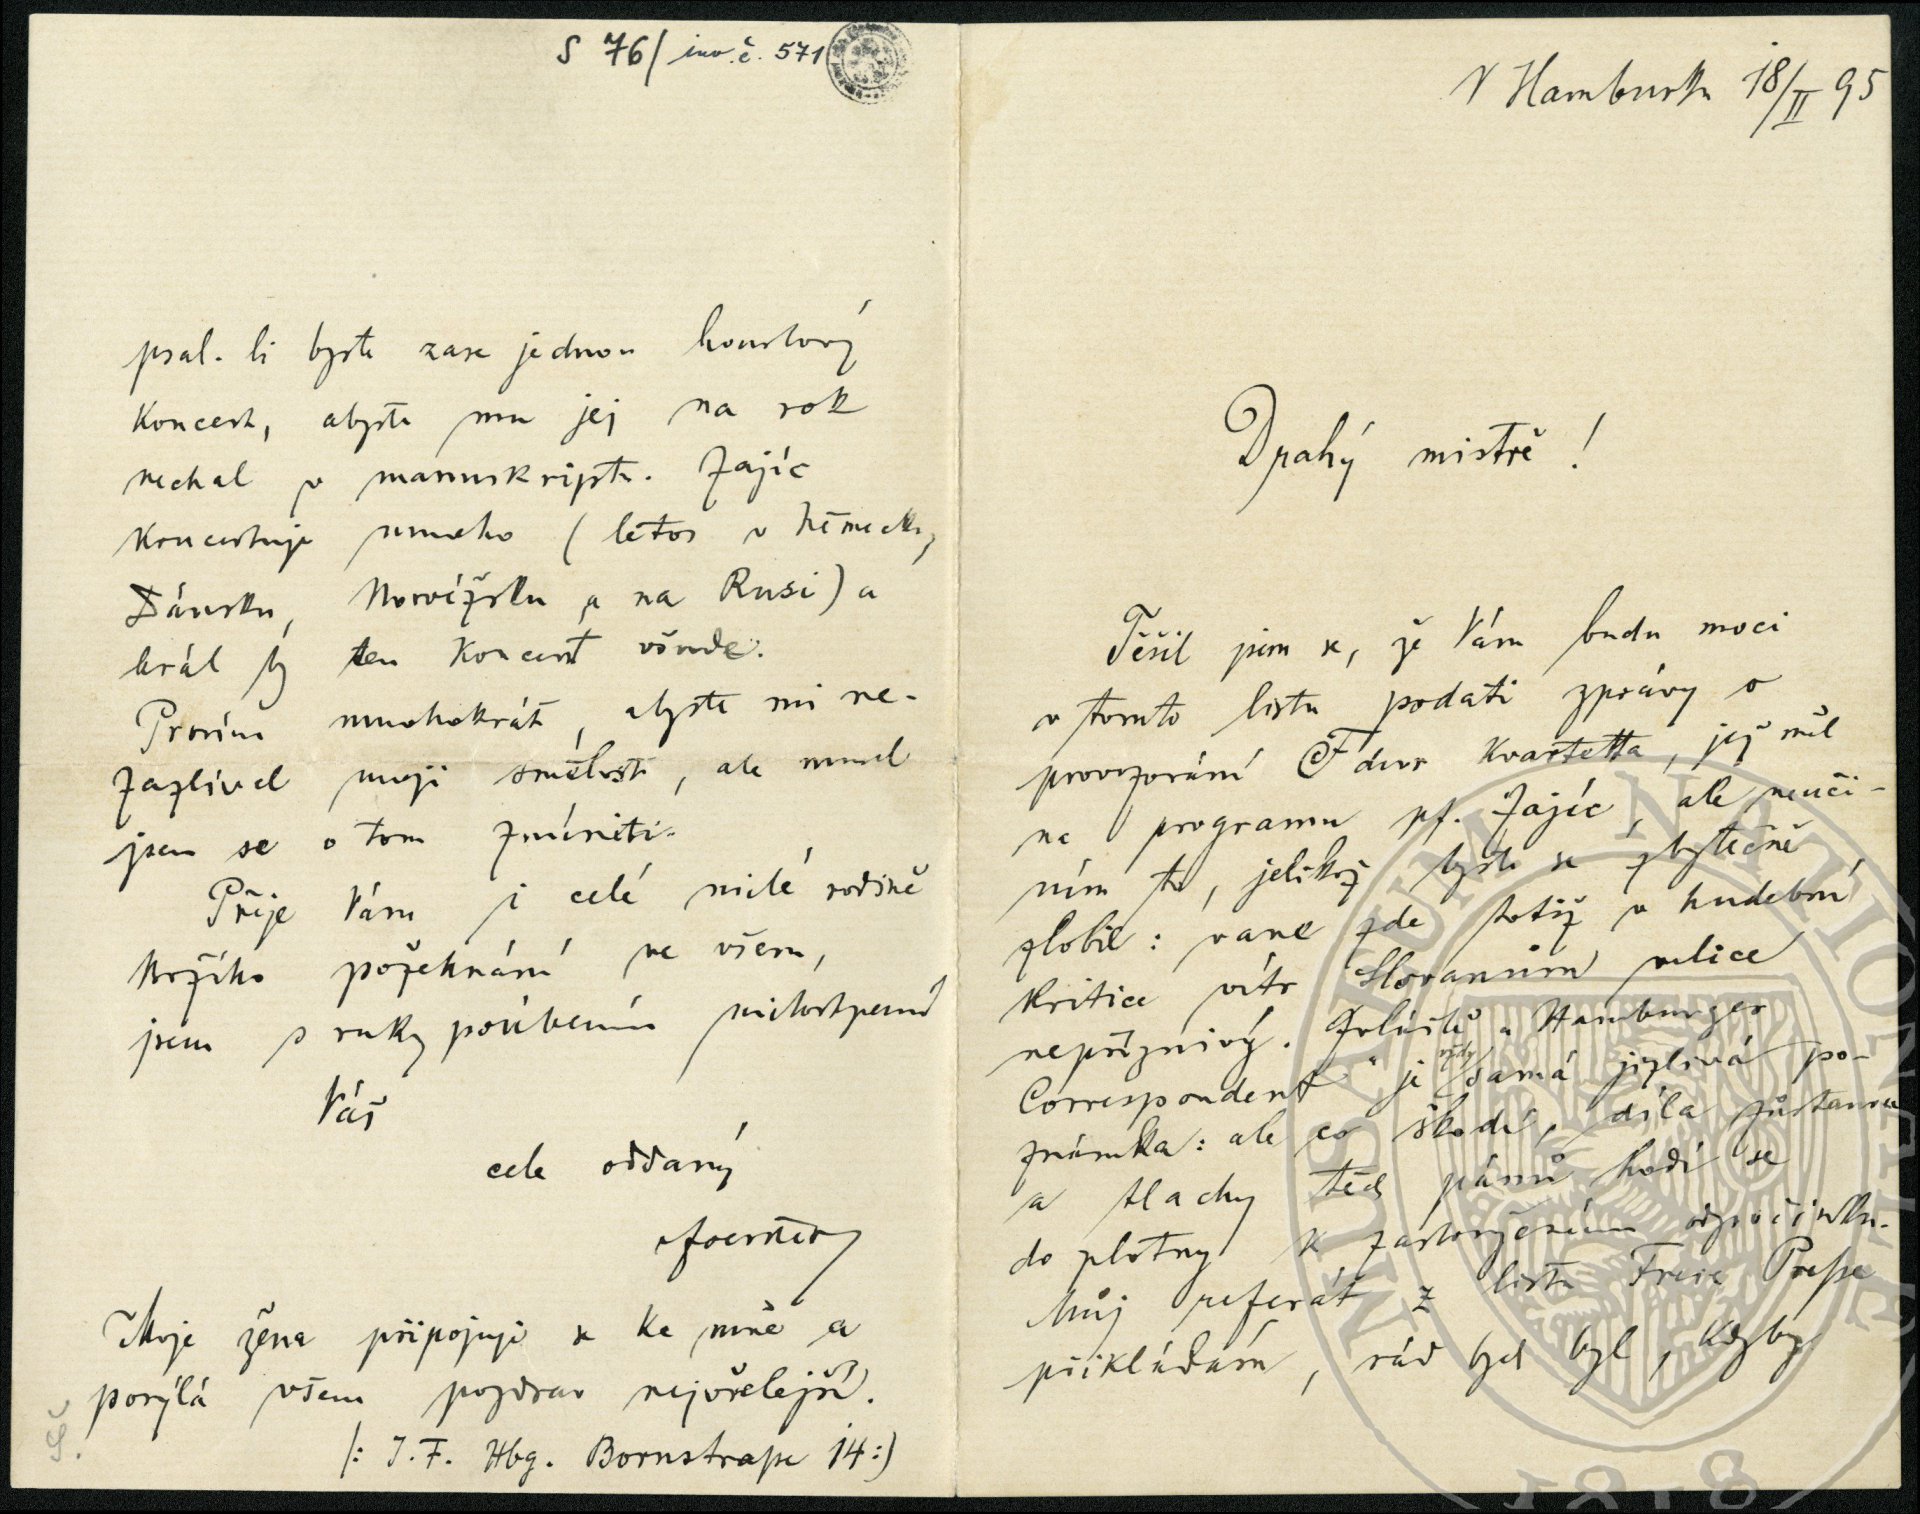 V Hamburku 18/II 95
Drahý mistře!
Těšil jsem se, že Vám budu moci
v tomto listu podati zprávy o
provozování F dur Kvartetta, jež měl
na programu pf. Zajíc, ale neuči-
ním to, jelikož byste se zbytečně
zlobil: vane zde totiž v hudební
kritice vítr Slovanům velice
nepříznivý. Zvláště v „Hamburger
Correspondent" je vždy samá jizlivá po-
známka: ale co škodí, díla zůstanou
a tlachy těch pánů hodí se
do plotny k zaslouženému odpočinku.
Můj referát z listu Freie Presse
přikládám, rád bych byl, kdyby
S 76/ inv. č. 571
psal-li byste zase jednou houslový
Koncert, abyste mu jej na rok
nechal v manuskriptu. Zajíc
koncertuje mnoho (letos v Německu,
Dánsku, Norvéžsku a na Rusi) a
hrál by ten Koncert všude.
Prosím mnohokrát, abyste mi ne-
zazlíval moji smělost, ale musel
jsem se o tom zmíniti.
Přeje Vám i celé milé rodině
Božího požehnání ve všem,
jsem s ruky políbením milostpaní
Váš
cele oddaný
JFoerster
Moje žena připojuje se ke mně a
posýlá všem pozdrav nejvřelejší.
(: J. F. Hbg. Bornstrasse 14:)